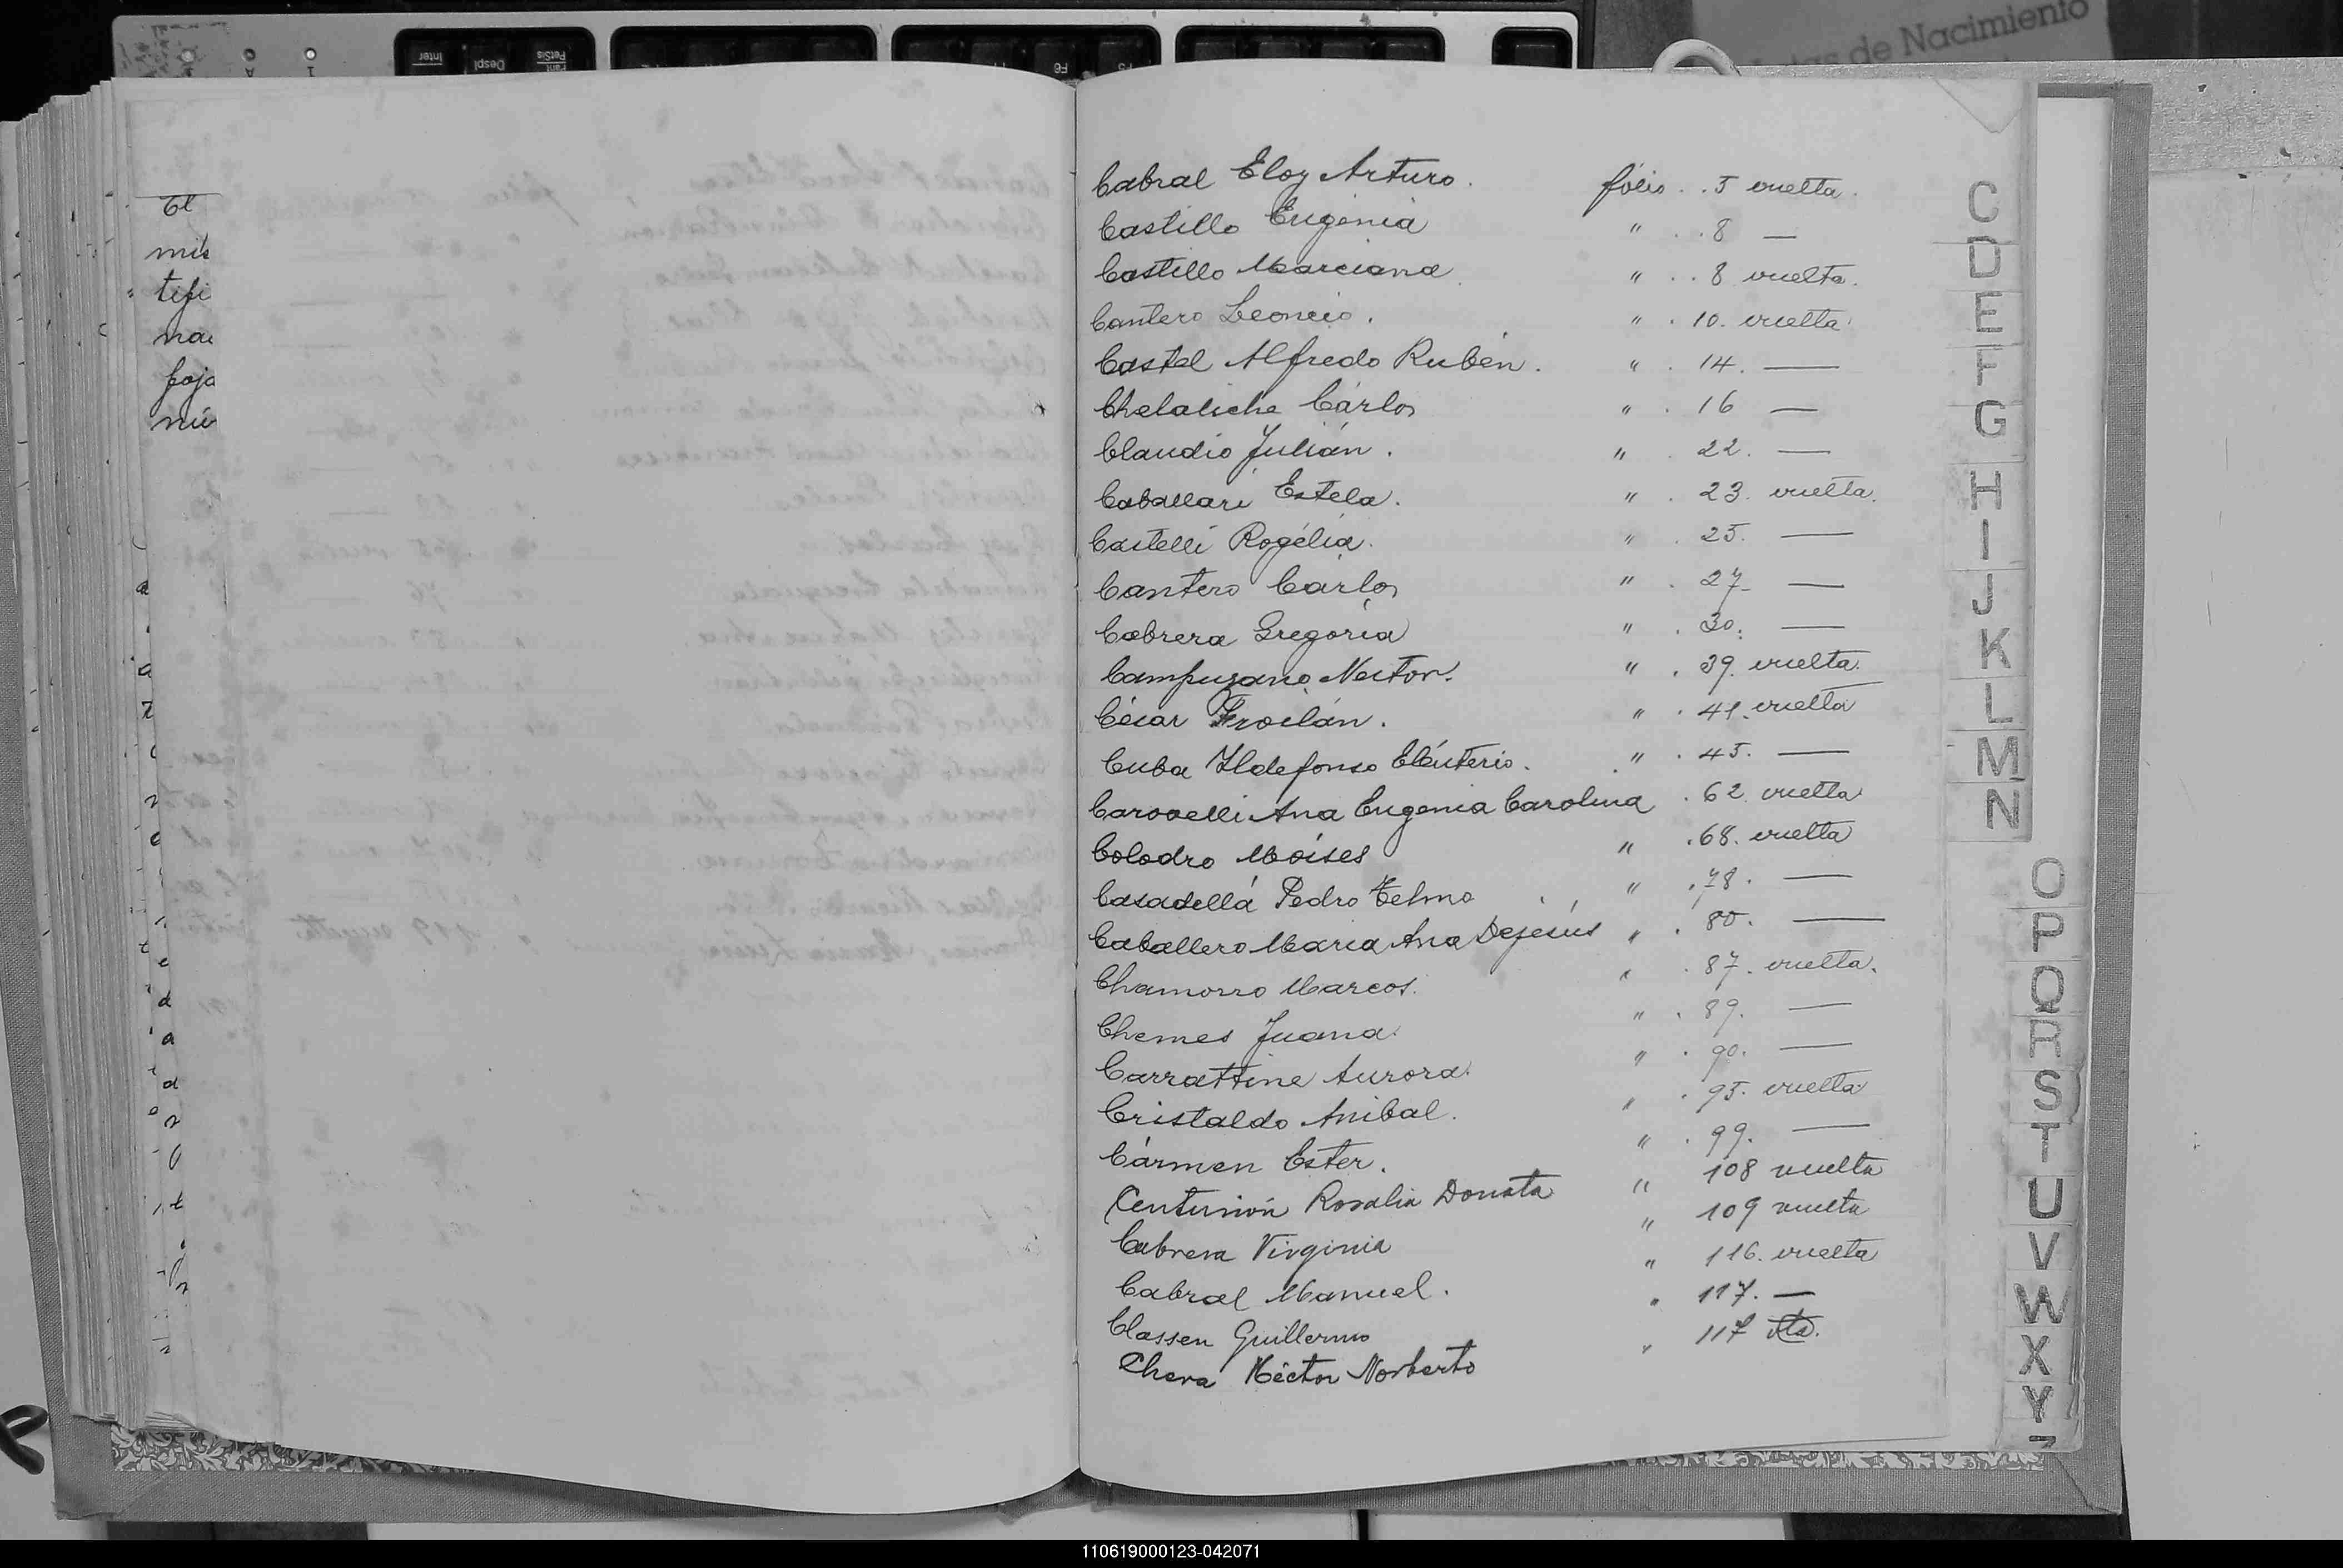 Actas de Nacimiento
Inter
Despl
Pant
PetSis
F6
F5
El
mis
tifi
nac
foja
nú
Cabral Eloy Arturo. folio . . 5 vuelta.
Castillo Eugenia " . . 8 —
Castillo Marciana " . . 8 vuelta.
Cantero Leoncio. " . 10. vuelta
Castel Alfredo Rubén. " . 14. —
Chelaliche Cárlos " . 16 —
Claudio Julián. " . 22. —
Caballari Estela. " . 23. vuelta.
Castelli Rogélia. " . 25. —
Cantero Cárlos " . 27 —
Cabrera Gregoria " . 30. —
Campuzano Nestor. " . 39. vuelta.
César Froilán. " . 41. vuelta
Cuba Ildefonso Eléuterio. " . 45. —
Carovelli Ana Eugenia Carolina . 62 vuelta
Colodro Moíses " . 68. vuelta
Casadellá Pedro Telmo " . 78. —
Caballero Maria Ana Dejesús " . 80. —
Chamorro Marcos. " . 87. vuelta.
Chemes Juana " . 89. —
Carrattine Aurora. " . 90. —
Cristaldo Anibal. " . 95. vuelta
Cármen Ester. " . 99. —
Centurión Rosalia Donata " 108 vuelta
Cabrera Virginia " 109 vuelta
Cabral Manuel. " 116. vuelta
Classen Guillermo " 117. —
Chera Héctor Norberto " 117 vta.
C
D
E
F
G
H
I
J
K
L
M
N
O
P
Q
R
S
T
U
V
W
X
Y
Z
110619000123-042071